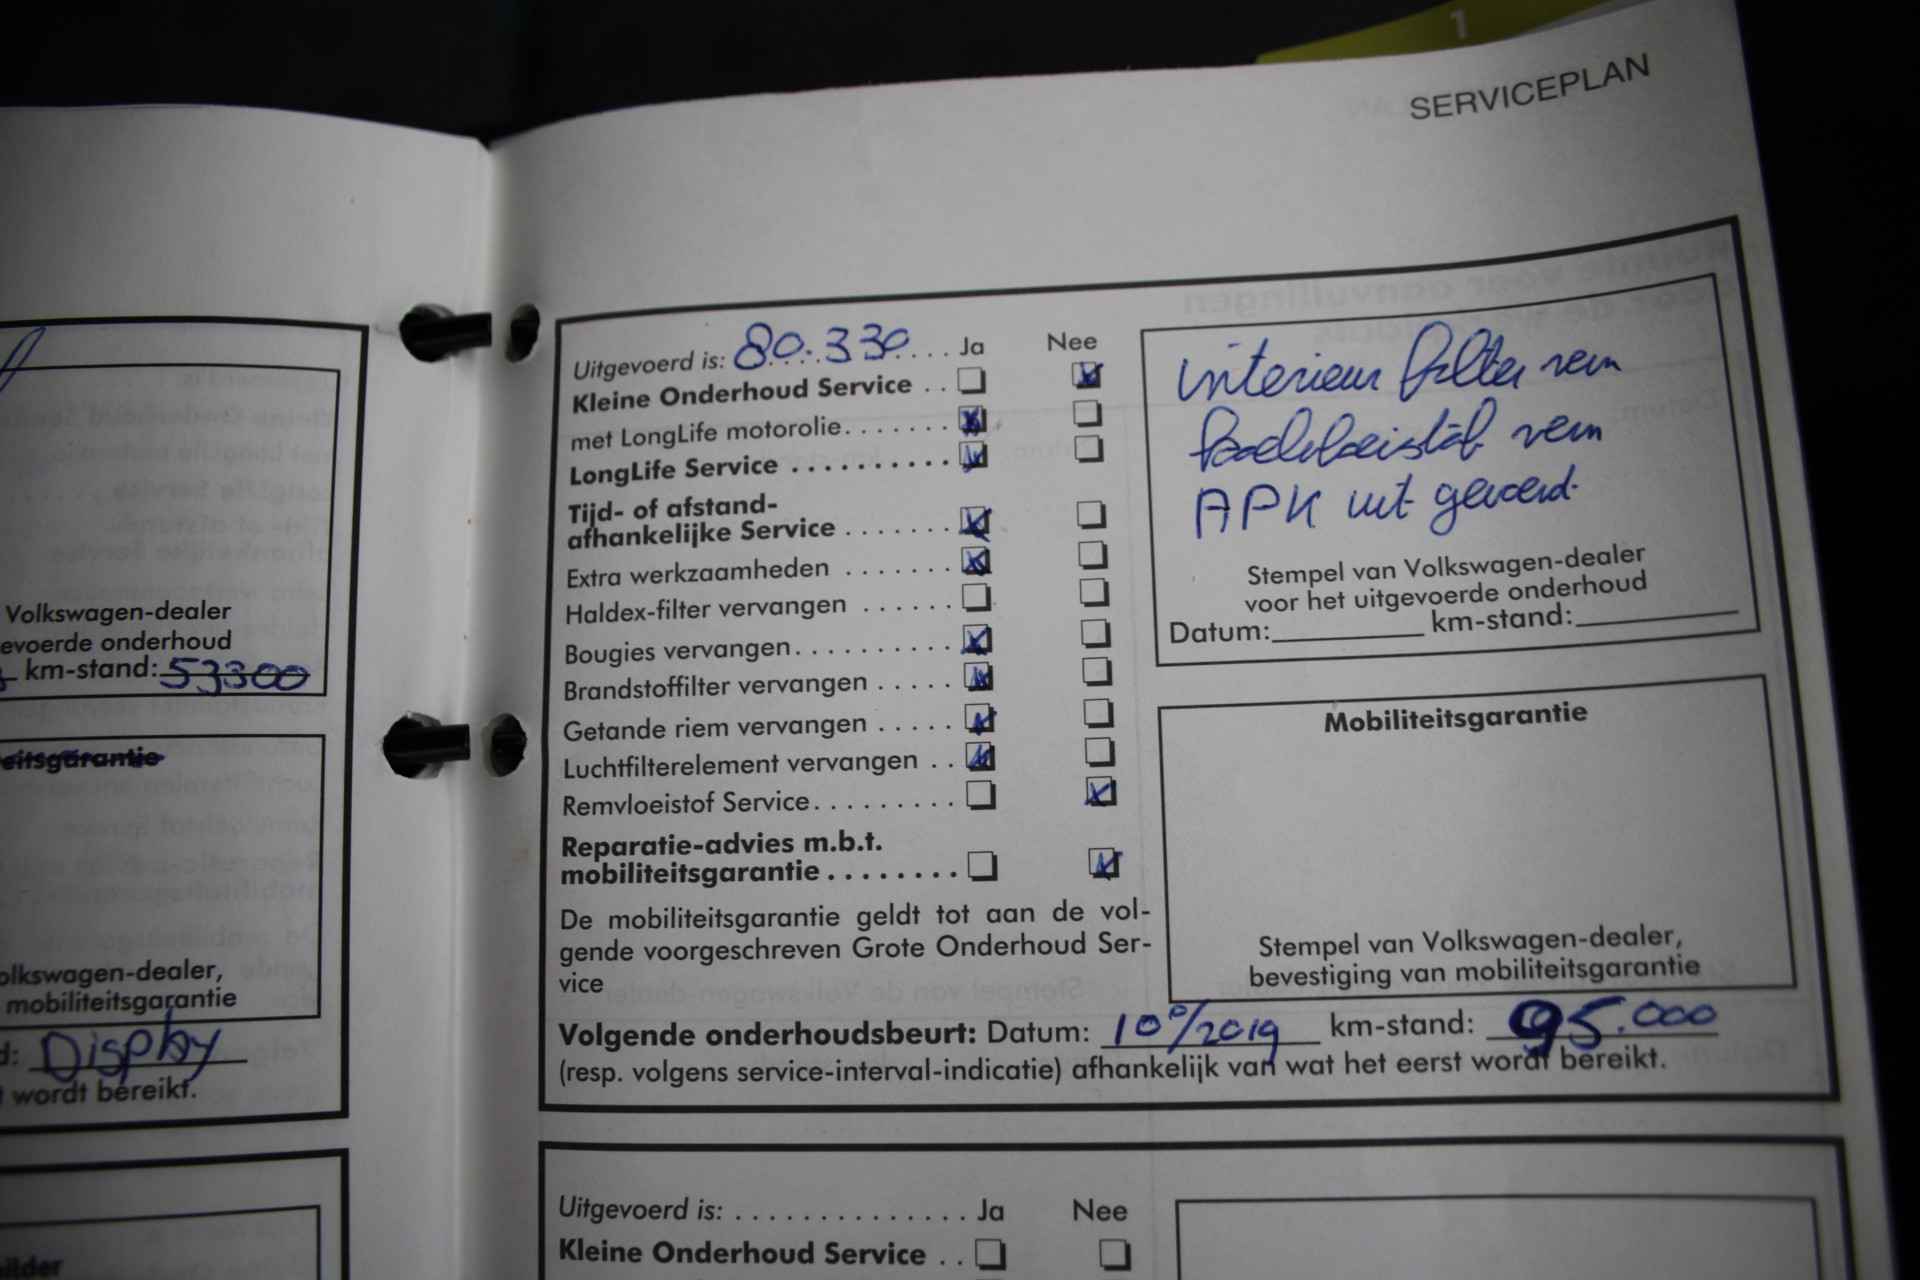 1
SERVICEPLAN
Volkswagen-dealer
evoerde onderhoud
km-stand: 53300
eitsgarantie
olkswagen-dealer,
mobiliteitsgarantie
d: Display
t wordt bereikt.
ilder
Uitgevoerd is: 80.330 Ja Nee
Kleine Onderhoud Service
met LongLife motorolie
LongLife Service
Tijd- of afstand-
afhankelijke Service
Extra werkzaamheden
Haldex-filter vervangen
Bougies vervangen
Brandstoffilter vervangen
Getande riem vervangen
Luchtfilterelement vervangen
Remvloeistof Service
Reparatie-advies m.b.t.
mobiliteitsgarantie
De mobiliteitsgarantie geldt tot aan de vol-
gende voorgeschreven Grote Onderhoud Ser-
vice
interieur filter
APK uit gevoerd
Stempel van Volkswagen-dealer
voor het uitgevoerde onderhoud
Datum: km-stand:
Mobiliteitsgarantie
Stempel van Volkswagen-dealer,
bevestiging van mobiliteitsgarantie
Volgende onderhoudsbeurt: Datum: /2019 km-stand: 95.000
(resp. volgens service-interval-indicatie) afhankelijk van wat het eerst wordt bereikt.
Uitgevoerd is: Ja Nee
Kleine Onderhoud Service